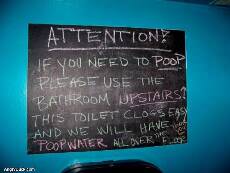 ATTENTION!
IF YOU NEED TO POOP
PLEASE USE THE
BATHROOM UPSTAIRS!
THIS TOILET CLOGS EASY
AND WE WILL HAVE
POOPWATER ALL OVER THE FLOOR